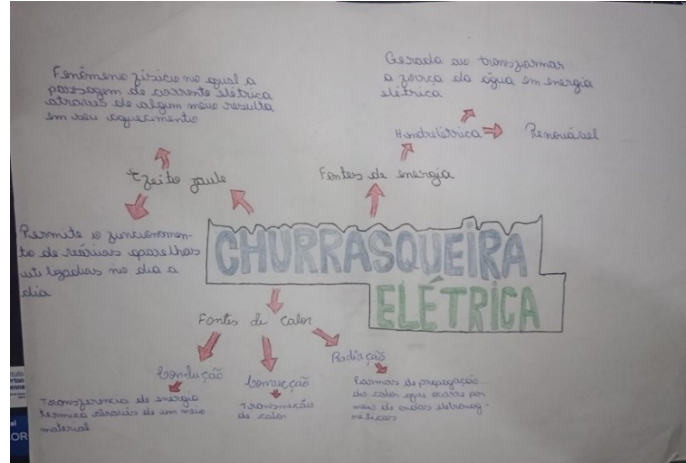 Fenômeno físico no qual a
passagem de corrente elétrica
através de algum meio resulta
em seu aquecimento
Gerada ao transformar
a força da água em energia
elétrica
Hidrelétrica
Renovável
Efeito Joule
Fontes de energia
Permite o funcionamen-
to de vários aparelhos
utilizados no dia a
dia
CHURRASQUEIRA
ELÉTRICA
Fontes de calor
Condução
Convecção
Radiação
Transferência de energia
térmica através de um meio
material
Transmissão
de calor
Formas de propagação
do calor que ocorre por
meio de ondas eletromag-
néticas